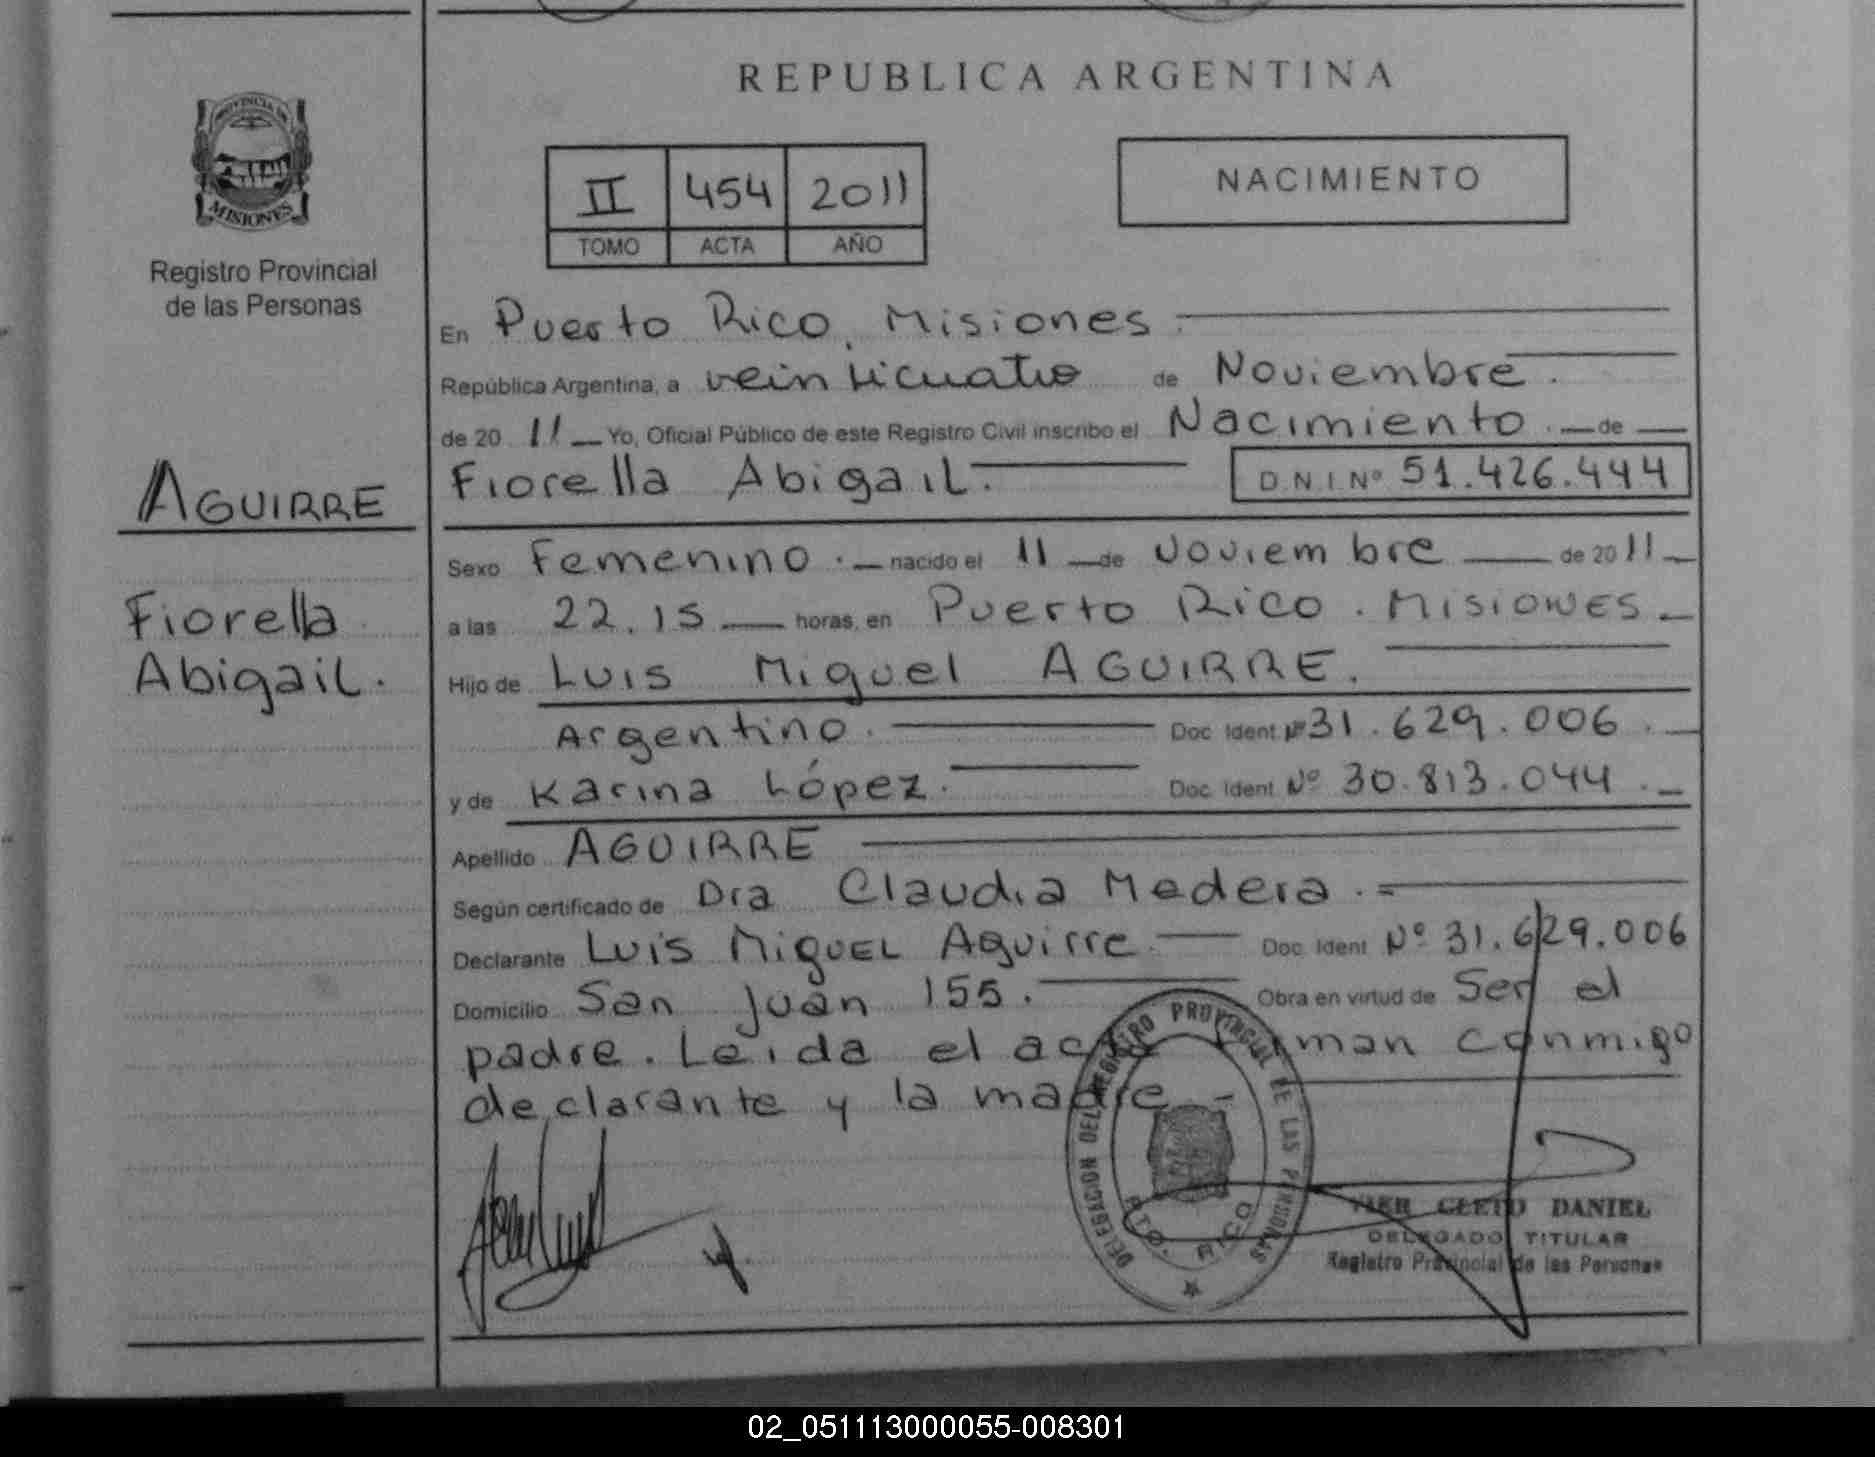 REPUBLICA ARGENTINA
PROVINCIA DE
MISIONES
Registro Provincial
de las Personas
II 454 2011
TOMO ACTA AÑO
NACIMIENTO
En Puerto Rico, Misiones
República Argentina, a veinticuatro de Noviembre.
de 20 11 Yo, Oficial Público de este Registro Civil inscribo el Nacimiento. de
AGUIRRE
Fiorella Abigail. D.N.I. Nº 51.426.444
Sexo Femenino. nacido el 11 de Noviembre de 2011
Fiorella
Abigail.
a las 22.15 horas, en Puerto Rico. Misiones
Hijo de Luis Miguel AGUIRRE.
Argentino. Doc Ident Nº 31.629.006.
y de Karina López. Doc Ident Nº 30.813.044.
Apellido AGUIRRE
Según certificado de Dra Claudia Madera. =
Declarante Luis Miguel Aguirre. Doc. Ident Nº 31.629.006
Domicilio San Juan 155. Obra en virtud de Ser el
padre. Leida el acta firman conmigo
declarante y la madre
DELEGACION DEL REGISTRO PROVINCIAL DE LAS PERSONAS
PTO. RICO
CLETO DANIEL
DELEGADO TITULAR
Registro Provincial de las Personas
02_051113000055-008301